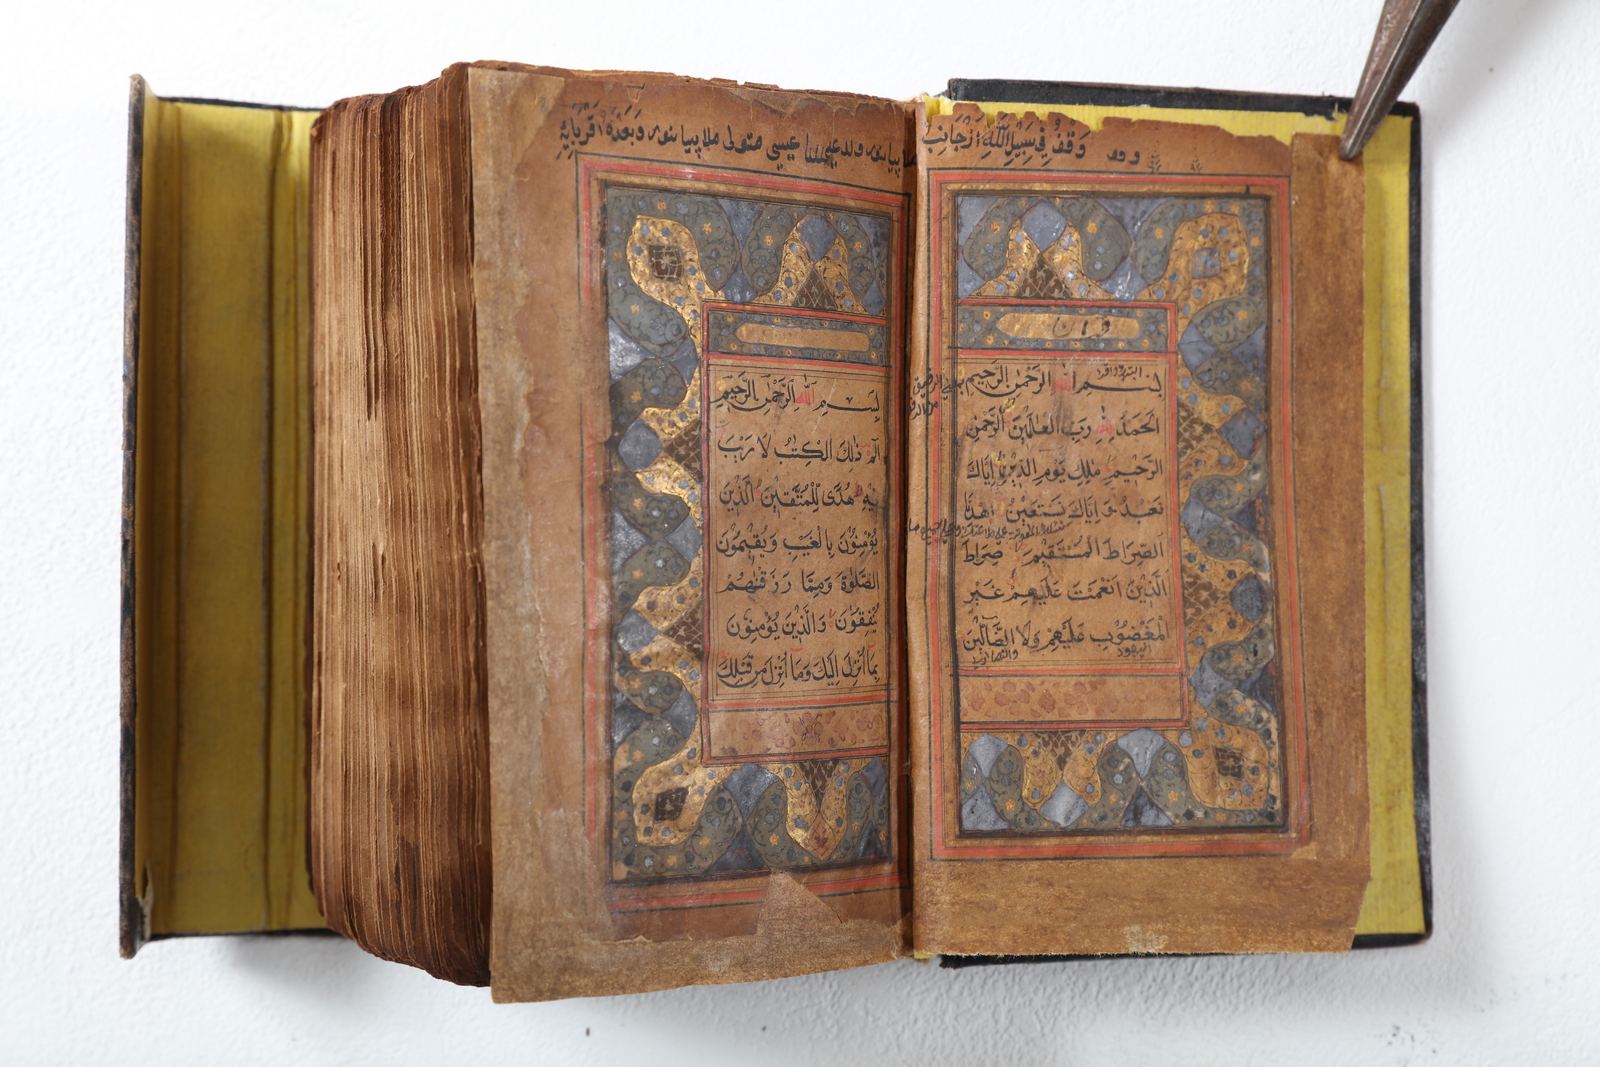 وقف في سبيل الله از جانب ملا پیا
ولد عیسی متولی ملا پیا وبعده اقربایه
بسم الله الرحمن الرحيم
الحمد لله رب العلمين الرحمن
الرحيم ملك يوم الدين اياك
نعبد واياك نستعين اهدنا
الصراط المستقيم صراط
الذين انعمت عليهم غير
المغضوب عليهم ولا الضالين
اليهود والنصارى
بسم الله الرحمن الرحيم
الم ذلك الكتب لا ريب
فيه هدى للمتقين الذين
يؤمنون بالغيب ويقيمون
الصلوة ومما رزقنهم
ينفقون والذين يؤمنون
بما انزل اليك وما انزل من قبلك